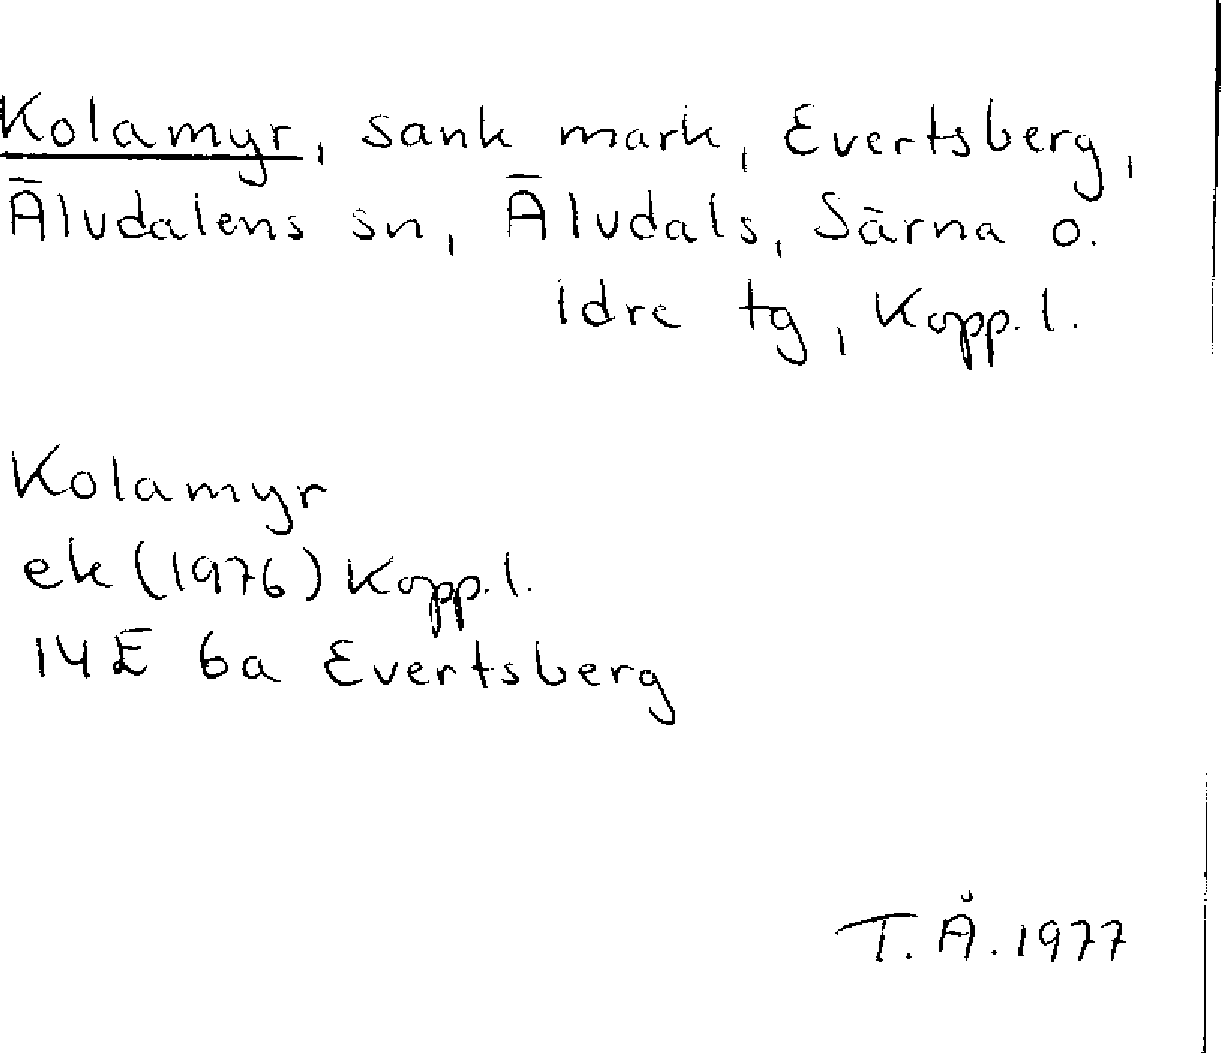 Kolamyr, sank mark, Evertsberg,
Älvdalens sn, Älvdals, Särna o.
Idre tg, Kopp. l.
Kolamyr
ek (1976) Kopp. l.
14E 6a Evertsberg
T. Å. 1977